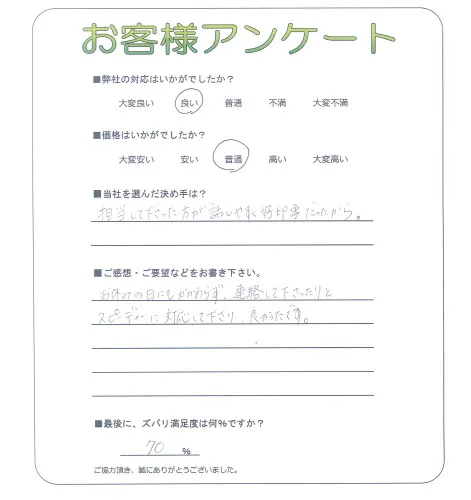 お客様アンケート
■弊社の対応はいかがでしたか？
大変良い 良い 普通 不満 大変不満
■価格はいかがでしたか？
大変安い 安い 普通 高い 大変高い
■当社を選んだ決め手は？
担当して下さった方が話しやすく好印象だったから。
■ご感想・ご要望などをお書き下さい。
お休みの日にもかかわらず、連絡して下さったりと
スピーディーに対応して下さり、良かったです。
■最後に、ズバリ満足度は何%ですか？
70 %
ご協力頂き、誠にありがとうございました。